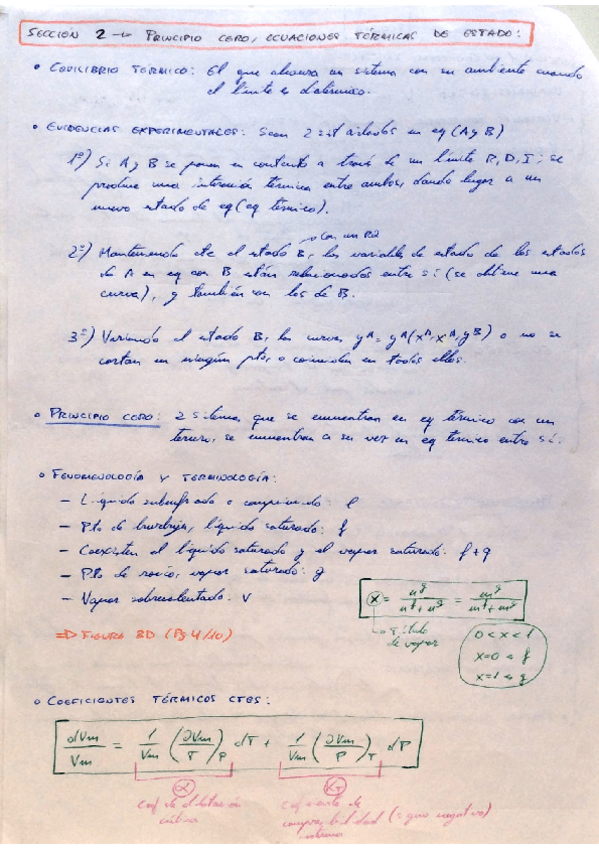 SECCIÓN 2 → PRINCIPIO CERO, ECUACIONES TÉRMICAS DE ESTADO:
• EQUILIBRIO TÉRMICO: El que alcanza un sistema con su ambiente cuando
el límite es diatérmico.
• EVIDENCIAS EXPERIMENTALES: Sean 2 sist aislados en eq (A y B)
1º) Si A y B se ponen en contacto a través de un límite R, D, I; se
produce una interacción térmica entre ambos, dando lugar a un
nuevo estado de eq (eq térmico).
→ Con un
2º) Manteniendo cte el estado B, las variables de estado de los estados
de A en eq con B están relacionadas entre sí (se obtiene una
curva), y también con los de B.
3º) Variando el estado B, las curvas yᴬ = yᴬ(xᴬ, xᴬ, yᴮ) o no se
cortan en ningún pto, o coinciden en todos ellos.
• PRINCIPIO CERO: 2 sistemas que se encuentran en eq térmico con un
tercero, se encuentran a su vez en eq termico entre sí.
• FENOMENOLOGÍA Y TERMINOLOGÍA:
- Líquido subenfriado o comprimido: l
- Pto de burbuja, líquido saturado: f
- Coexisten el líquido saturado y el vapor saturado: f+g
- Pto de rocío, vapor saturado: g
- Vapor sobrecalentado: v
x = = mᵍ / mᶠ + mᵍ
→ título
de vapor
0 < x < 1
x=0 → f
x=1 → g
⇒ FIGURA 3D (Pg 4/10)
• COEFICIENTES TÉRMICOS CTES:
dVm/Vm = 1/Vm (∂Vm/T)P dT + 1/Vm (∂Vm/P)T dP
α
KT
Coef de dilatación
cúbica
Coeficiente de
compresibilidad (signo negativo)
isoterma